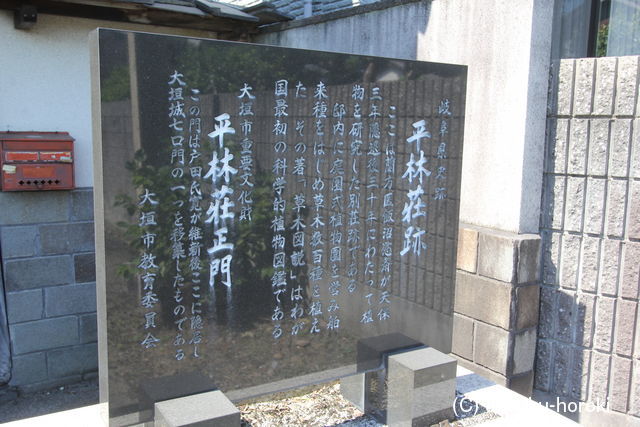 岐阜県史跡
平林荘跡
ここは蘭方医飯沼慾斎が天保
三年隠退後三十年にわたって植
物を研究した別荘跡である
邸内に庭園式植物園を営み舶
来種をはじめ草木数百種を植え
た その著「草木図説」はわが
国最初の科学的植物図鑑である
大垣市重要文化財
平林荘正門
この門は戸田氏寛が維新後ここに隠居し
大垣城七口門の一つを移築したものである
大垣市教育委員会
(C)
horeki